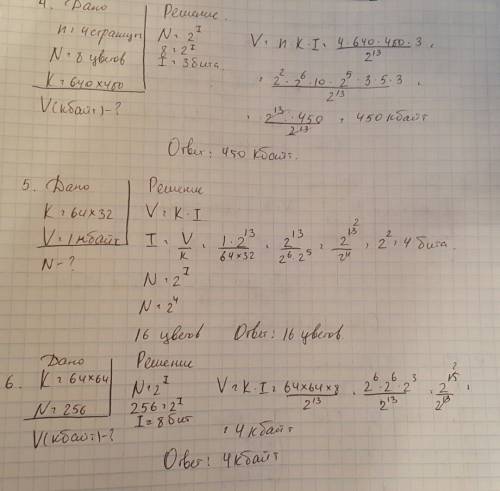 4. Дано
n = 4 страницы
N = 8 цветов
K = 640×480
V(кбайт) - ?
Решение
N = 2^I
8 = 2^I
I = 3 бита.
V = n·K·I = 4·640·480·3 / 2^13 =
= 2^2·2^6·10·2^5·3·5·3 / 2^13 =
= 2^13·450 / 2^13 = 450 кбайт
Ответ: 450 кбайт.
5. Дано
K = 64×32
V = 1 кбайт
N - ?
Решение
V = K·I
I = V / K = 1·2^13 / 64×32 = 2^13 / 2^6·2^5 = 2^13 / 2^11 = 2^2 = 4 бита.
N = 2^I
N = 2^4
16 цветов Ответ: 16 цветов.
6. Дано
K = 64×64
N = 256
V(кбайт) - ?
Решение
N = 2^I
256 = 2^I
I = 8 бит
V = K·I = 64×64×8 / 2^13 = 2^6·2^6·2^3 / 2^13 = 2^15 / 2^13 =
= 4 кбайт
Ответ: 4 кбайт